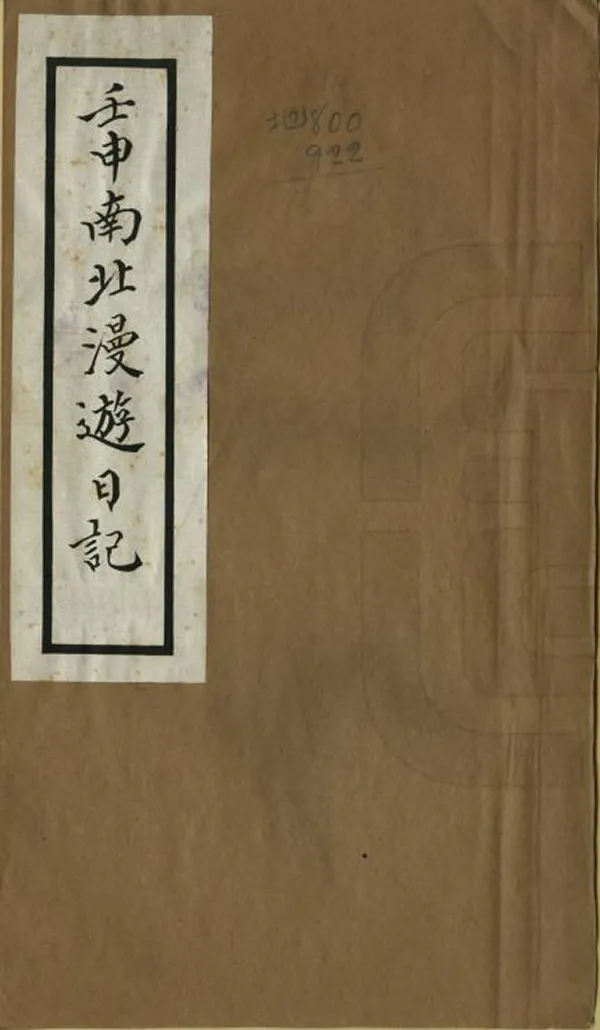 壬申南北漫遊日記
地800
922